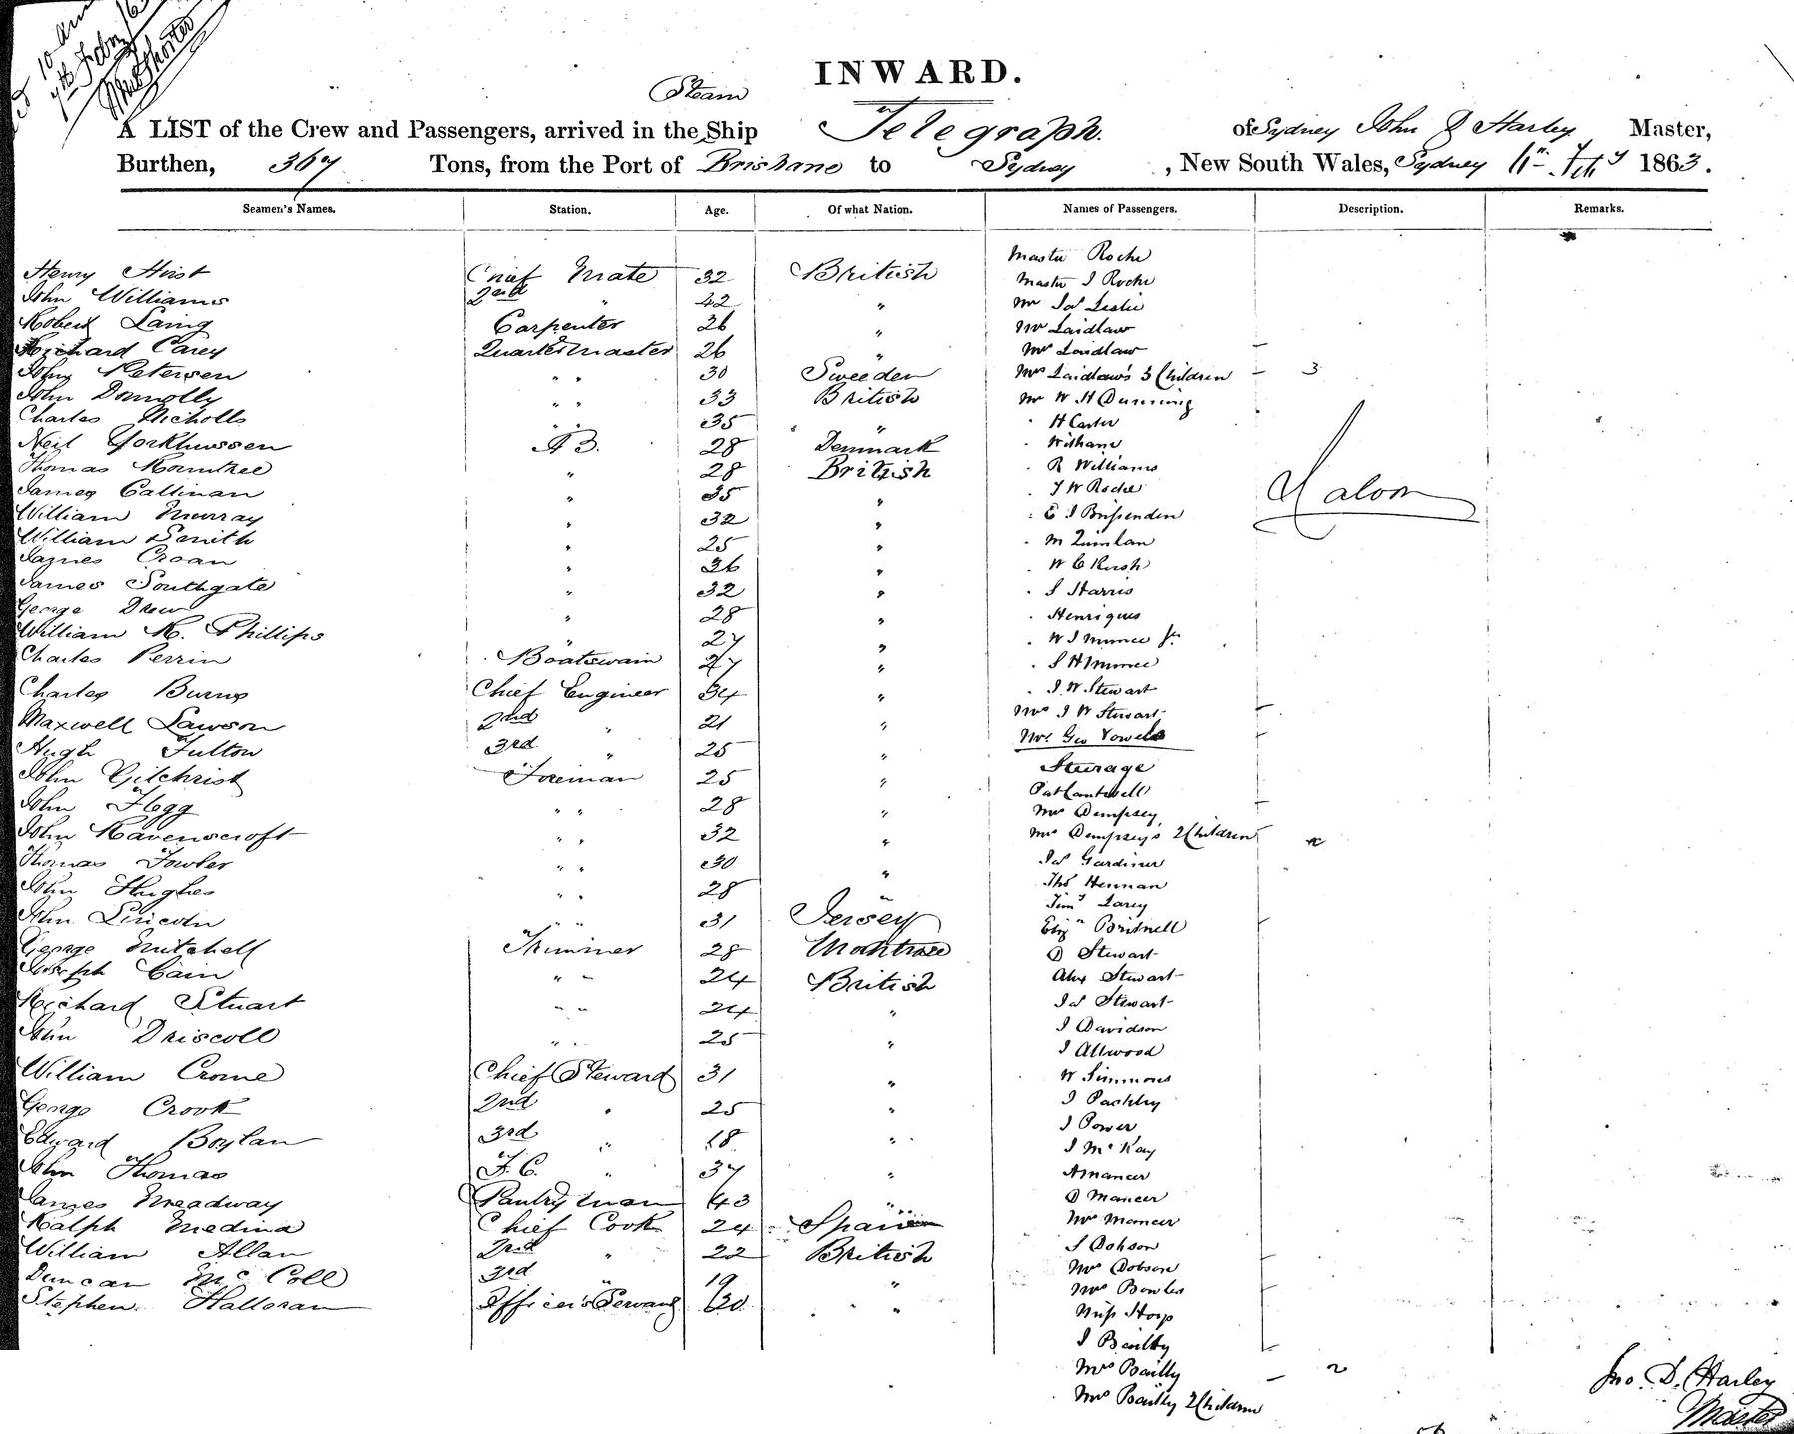 10 am
7th Feby
INWARD.
Steam
A LIST of the Crew and Passengers, arrived in the Ship Telegraph. of Sydney John D Harley Master,
Burthen, 367 Tons, from the Port of Brisbane to Sydney, New South Wales, Sydney 11th Feby 1863.
Seamen's Names. Station. Age. Of what Nation. Names of Passengers. Description. Remarks.
Master Roche
Henry Hirst Chief Mate 32 British Master J Roche
John Williams 2nd " 42 " Mr Jas Leslie
Robert Laing Carpenter 26 " Mr Laidlaw
Richard Carey Quartermaster 26 " Mrs Laidlaw
John Petersen " " 30 Sweeden Mrs Laidlaw's 3 Children 3
John Donnolly " " 33 British Mr W H Dunning
Charles Nicholls " " 35 " H Carter
Neil Yorkhussen AB. 28 Denmark Withane
Thomas Rowntree " 28 British R Williams
James Callinan " 35 " J W Roche Saloon
William Murray " 32 " E J Brissenden
William Smith " 25 " M Quinlan
James Croan " 36 " W C Rush
James Southgate " 32 " S Harris
George Drew " 28 " Henriques
William K. Phillips " 27 " W J Munce Jr
Charles Perrin Boatswain 27 " S H Munce
Charles Burns Chief Engineer 34 " J. W Stewart
Maxwell Lawson 2nd " 21 " Mrs J W Stewart
Hugh Fulton 3rd " 25 " Mrs Geo Vowels
John Gilchrist Foreman 25 " Steerage
Pat Cantwell
John Flegg " " 28 " Mrs Dempsey
John Ravenscroft " " 32 " Mrs Dempsey's 2 Children 2
Thomas Fowler " " 30 " Jas Gardiner
John Hughes " " 28 " Thos Hennan
Timy Larey
John Lincoln " " 31 Jersey Elizh Britnell
George Mitchell Trimmer 28 Montrose D Stewart
Joseph Cain " " 24 British Alex Stewart
Richard Stuart " " 24 " Jas Stewart
J Davidson
John Driscoll " " 25 " J Allwood
William Crome Chief Steward 31 " W Simmons
George Crook 2nd " 25 " J Pashley
J Power
Edward Boylan 3rd " 18 " J McKay
John Thomas F.C. " 37 " A Mancer
James Meadway Pantry man 43 " D Mancer
Ralph Medina Chief Cook 24 Spain Mrs Mancer
William Allan 2nd " 22 British S Dobson
Duncan McColl 3rd " 19 " Mrs Dobson
Stephen Halloran Officer's Servant 30 " Mrs Bowles
Miss Horp
J Bailby
Mrs Bailly 2
Mrs Bailby 2 Children
Jno. D. Harley
Master
56